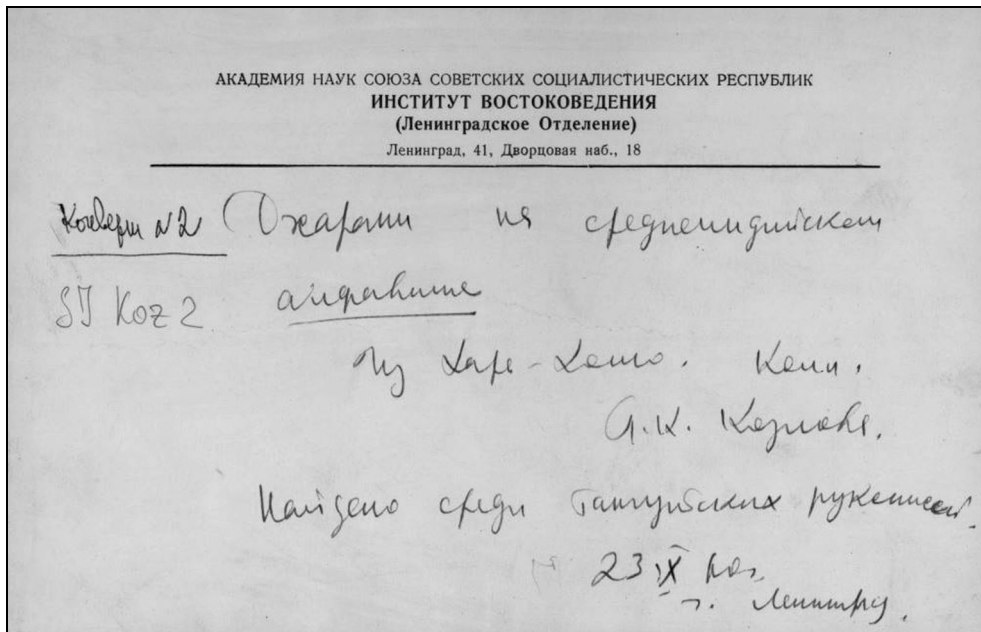 АКАДЕМИЯ НАУК СОЮЗА СОВЕТСКИХ СОЦИАЛИСТИЧЕСКИХ РЕСПУБЛИК
ИНСТИТУТ ВОСТОКОВЕДЕНИЯ
(Ленинградское Отделение)
Ленинград, 41, Дворцовая наб., 18
Конверт №2 Дхарани на среднеиндийском
SI Koz 2 алфавите
Из Хара-Хото. Колл.
П.К. Козлова.
Найдено среди тангутских рукописей.
23 IX
г. Ленинград.